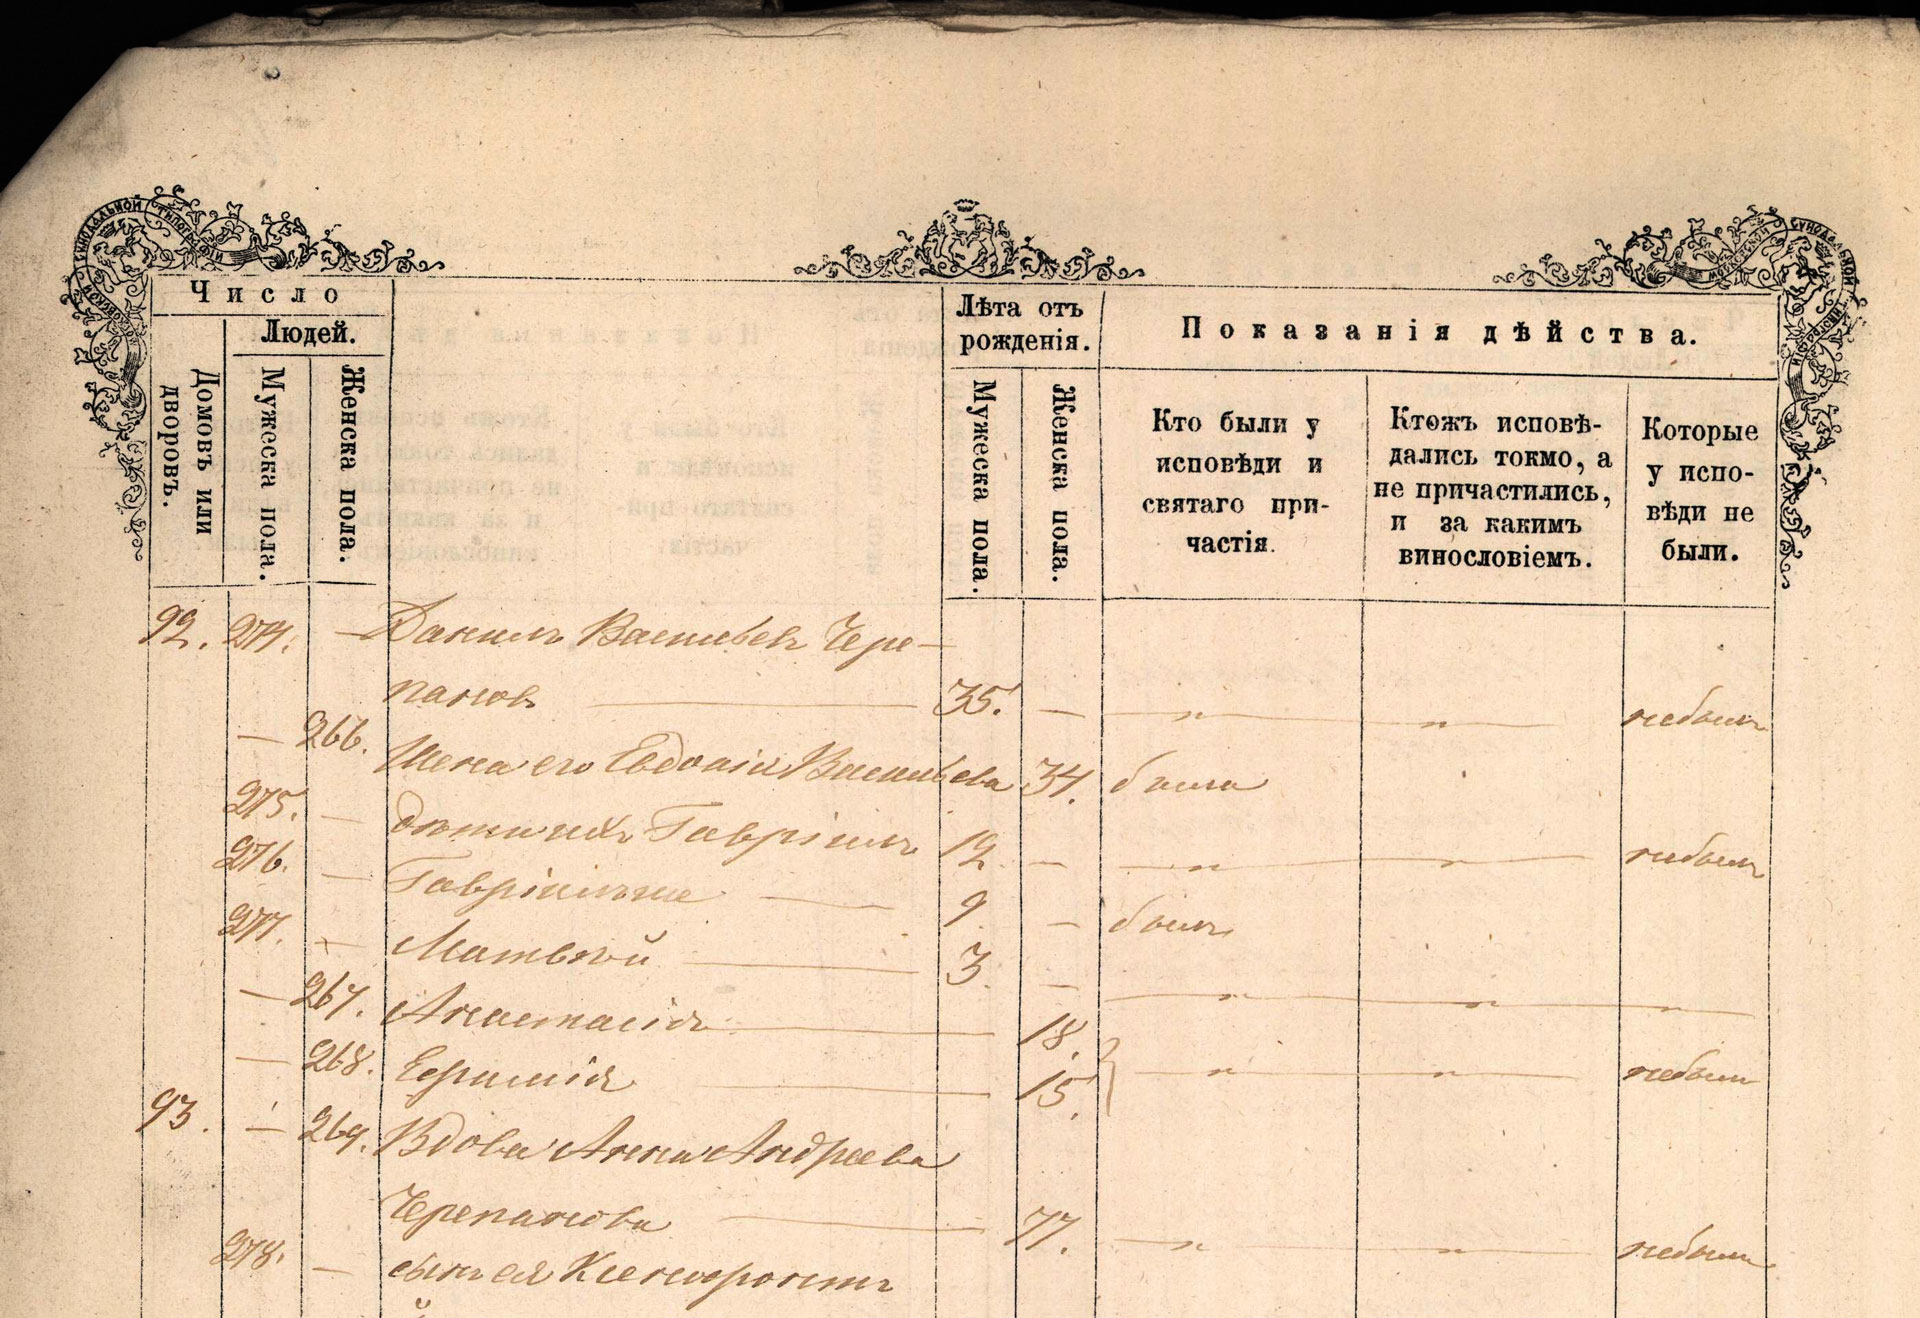 СИНОДАЛЬНОЙ ТИПОГРАФІИ
МОСКОВСКОЙ
МОСКОВСКОЙ СИНОДАЛЬНОЙ ТИПОГРАФІИ
Число
Людей.
Домовъ или дворовъ.
Мужеска пола.
Женска пола.
Лѣта отъ рожденія.
Мужеска пола.
Женска пола.
Показанія дѣйства.
Кто были у
исповѣди и
святаго при-
частія.
Ктожъ исповѣ-
дались токмо, а
не причастились,
и за какимъ
винословіемъ.
Которые
у испо-
вѣди не
были.
92. 274. — Данилъ Васильевъ Чере-
пановъ — 35. — — " — " — небылъ
— 266. Жена его Евдокія Васильева 34. была
275. — дѣти ихъ Гавріилъ 12 — — " — " — небылъ
276. — — 9 — былъ
277. — Матвѣй — 3. — — " — " —
— 267. Анастасія — 18.
— 268. Ефимія — 15. } — " — " — небыли
93. — 269. Вдова Анна Андреева
Черепанова — 77. — " — " — небыла
278. — сынъ ея Ксенофонтъ